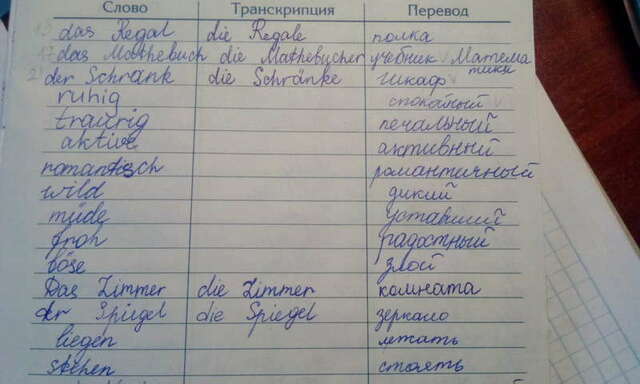 Слово Транскрипция Перевод
das Regal die Regale полка
das Mathebuch die Mathebücher учебник Матема
тики
der Schrank die Schränke шкаф
ruhig спокойный
traurig печальный
aktive активный
romantisch романтичный
wild дикий
müde уставший
froh радостный
böse злой
Das Zimmer die Zimmer комната
der Spiegel die Spiegel зеркало
liegen лежать
stehen стоять